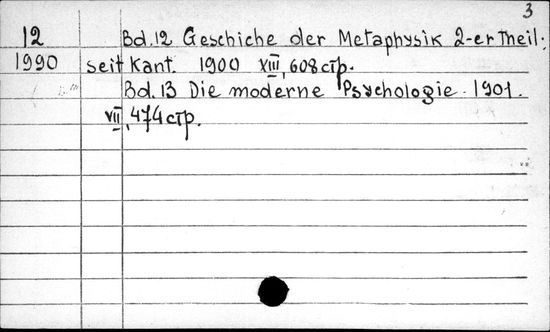 3
12 Bd. 12 Geschiche der Metaphysik 2-er Theil;
1990 seit Kant. 1900 XIII, 608 стр.
Bd. 13 Die moderne Psychologie. 1901.
VII, 474 стр.